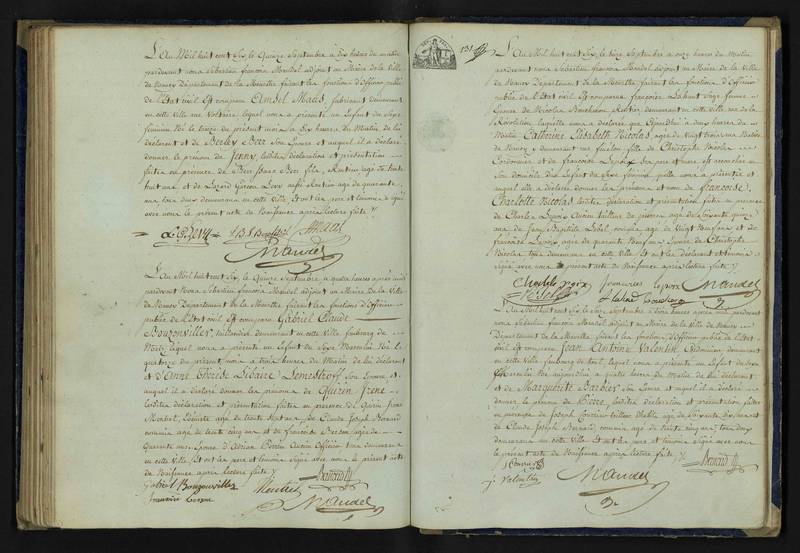 L'An Mil huit cent Six le Quinze Septembre à dix heures du matin
pardevant nous Sebastien francois Mandel adjoint au Maire de la Ville
de Nancy Département de la Meurthe faisant les fonctions d'Officier public
de l'Etat civil Est comparu Amsel Maas, fabricant demeurant
en cette Ville rue Voltaire lequel nous a présenté un Enfant du Sexe
feminin Né le treize du présent mois à dix heures du Matin de lui
déclarant et de Berley Berr Son Epouse et auquel il a déclaré
donner le prénom de Jenny, lesdites déclaration et présentation
faites en présence de Berr Isaac Berr fils, Rentier agé de trente
huit ans et de Lazard Garçon Levy aussi Rentier agé de quarante
ans tous deux demeurans en cette Ville, Et ont les père et témoins signé
avec nous le présent acte de Naissance après lecture faite
Mandel
L'An Mil huit cent Six le Quinze Septembre à quatre heures après midi
pardevant Nous Sebastien francois Mandel adjoint au Maire de la Ville
de Nancy Département de la Meurthe faisant les fonctions d'Officier
public de l'Etat civil Est comparu Gabriel Claude
Bouzonviller, taillandier demeurant en cette Ville faubourg de
Metz, lequel nous a présenté un Enfant du Sexe Masculin Né le
quatorze du présent mois à trois heures du Matin de lui déclarant
et d'Anne Thérèse Libaire Lemestroff Son Epouse et
auquel il a déclaré donner les prénoms de Quirin Irené
lesdites déclaration et présentation faites en présence de Quirin Jean
agé de trente Sept ans, de Claude Joseph Bernard
commis agé de trente cinq ans et de françoise Bresson agée de
Quarante ans Epouse d'Adrien Perrin ancien Officier tous demeurans
en cette Ville, Et ont les père et témoins Signé avec nous le présent acte
de Naissance après lecture faite
Gabriel Bouzonviller
Bernard
Mandel
131
L'An Mil huit cent Six le Seize Septembre à onze heures du Matin
pardevant nous Sébastien francois Mandel adjoint au Maire de la Ville
de Nancy Département de la Meurthe faisant les fonctions d'Officier
public de l'Etat civil Est comparue françoise Lahaut Sage femme
Epouse de Nicolas Rentier demeurant en cette Ville rue de la
Révolution laquelle nous a déclaré que Cejourd'hui à deux heures du
Matin Catherine Elisabeth Nicolas, agée de Vingt trois ans Native
de Nancy y demeurant rue fille de Christophe Nicolas
Cordonnier et de francoise Lepoix Ses père et mère est accouchée en
Son domicile d'un Enfant du Sexe féminin qu'elle nous a présenté et
auquel elle a déclaré donner les prénoms et nom de francoise
Charlotte Nicolas lesdites déclaration et présentation faites en présence
de Charles Lepoix Ancien tailleur de pierres agé de Soixante quinze
ans de Jean Baptiste Lebel, commis, agé de Vingt Neuf ans et de
francoise Lepoix agée de quarante Neuf ans Epouse de Christophe
Nicolas tous demeurans en cette Ville Et ont les déclarante et témoins
Signé avec nous le présent acte de Naissance après lecture faite
Mandel
L'An Mil huit cent Six le Seize Septembre à deux heures après midi pardevant
nous Sebastien francois Mandel adjoint au Maire de la Ville de Nancy
Département de la Meurthe faisant les fonctions d'Officier public de l'Etat
civil Est comparu Jean Antoine Valentin Cordonnier, demeurant
en cette Ville faubourg de lequel nous a présenté un Enfant du Sexe
Masculin Né aujourd'hui à quatre heures du matin de lui déclarant
et de Marguerite Barbier Son Epouse et auquel il a déclaré
donner le prénom de Pierre, lesdites déclaration et présentation faites
en présence de Joseph tailleur d'habits agé de Soixante ans
et de Claude Joseph Bernard, commis agé de trente cinq ans tous deux
demeurans en cette Ville Et ont les père et témoins Signé avec nous
le présent acte de Naissance après lecture faite
Bernard
j Valentin
Mandel